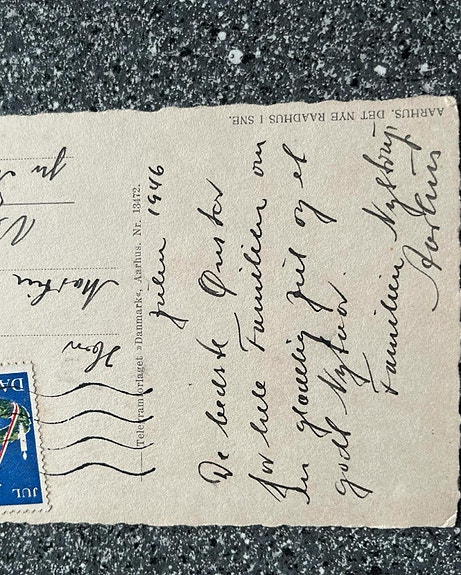 AARHUS. DET NYE RAADHUS I SNE.
Julen 1946
De bedste Ønsker
for hele Familien om
en glædelig Jul og et
godt Nytaar.
Familien Nystrup
Aarhus
Telegramforlaget »Danmark«, Aarhus. Nr. 13472.
Hrr
Martin
JUL
DA